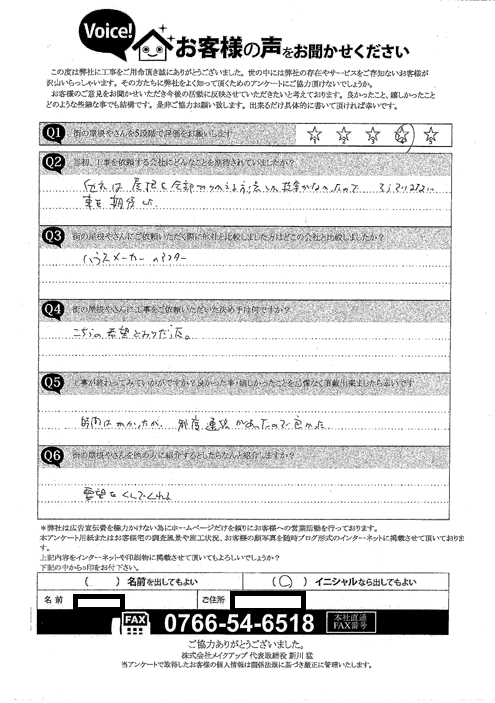 Voice!
お客様の声をお聞かせください
この度は弊社に工事をご用命頂き誠にありがとうございました。世の中には弊社の存在やサービスをご存知ないお客様が
沢山いらっしゃいます。その方たちに弊社をよく知って頂くためのアンケートにご協力頂けないでしょうか。
お客様のご意見をお聞かせいただき今後の活動に反映させていただきたいと考えております。良かったこと、嬉しかったこと
どのような些細な事でも結構です。是非ご協力お願い致します。出来るだけ具体的に書いて頂ければ幸いです。
Q1 街の屋根やさんを5段階で評価をお願いします
1 2 3 4 5
Q2 当初、工事を依頼する会社にどんなことを期待されていましたか?
事を期待した
Q3 街の屋根やさんにご依頼いただく際に他社と比較しました方はどこの会社と比較しましたか?
ハウスメーカー
Q4 街の屋根やさんに工事をご依頼いただいた決め手は何ですか?
こちらの希望どおりだった。
Q5 工事が終わってみていかがですか?良かった事・嬉しかったことを忌憚なく頂戴出来ましたら幸いです
時間はかかったが、都度連絡があったので良かった
Q6 街の屋根やさんを他の方に紹介するとしたらなんと紹介しますか?
要望をきいてくれる
*弊社は広告宣伝費を極力かけない為にホームページだけを頼りにお客様への営業活動を行っております。
本アンケート用紙またはお客様宅の調査風景や施工状況、お客様の顔写真を随時ブログ形式のインターネットに掲載させて頂いておりま
す。
上記内容をインターネットや印刷物に掲載させて頂いてもよろしいでしょうか?
下記の中から○印をお付下さい。
( )名前を出してもよい (○)イニシャルなら出してもよい
名前 ご住所
FAX 0766-54-6518 本社直通 FAX番号
ご協力ありがとうございました。
株式会社メイクアップ 代表取締役 新川 猛
当アンケートで取得したお客様の個人情報は関係法規に基づき厳正に管理いたします。